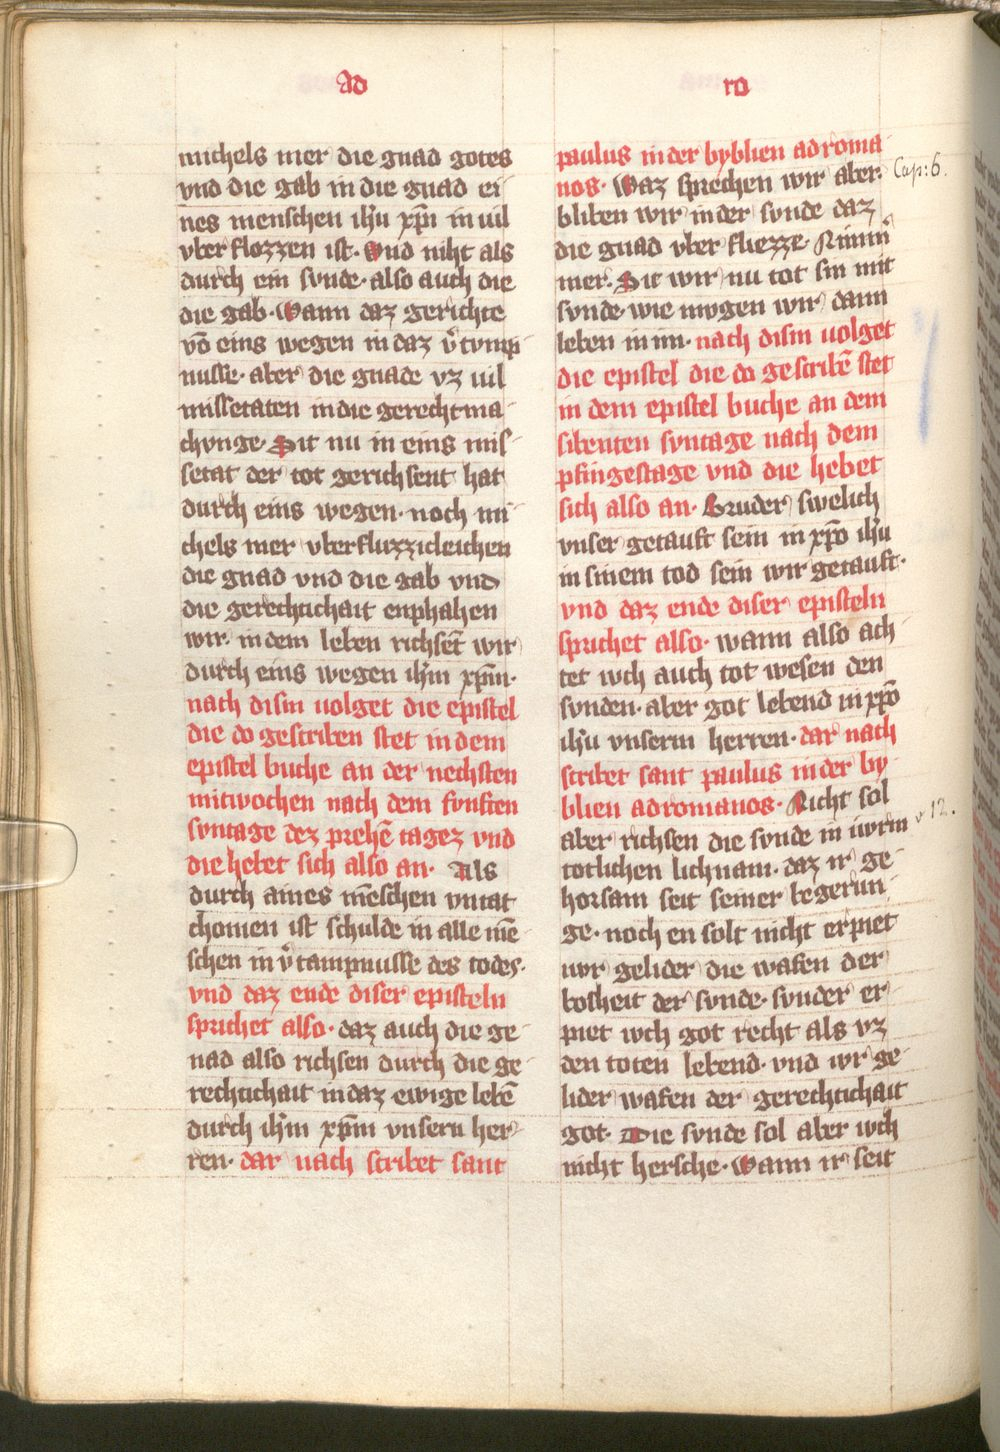 Ad
ro
michels mer die gnad gotes
vnd die gab in die gnad ei-
nes menschen ihu xpi in uil
vber flozzen ist. Vnd niht als
durch ein svnde. also auch die
die gab. Wann daz gerichte
vō eins wegen in daz v̄tvmp
nusse. aber die gnade vz uil
missetaten in die gerechtma-
chvnge. Sit nu in eins mis-
setat der tot gerichsent hat
durch eins wegen. noch mi-
chels mer vberfluzzicleichen
die gnad vnd die gab vnd
die gerechtichait enphahen
wir. in dem leben richsēt wir
durch eins wegen ihm xpm.
nach disin uolget die epistel
die do gescriben stet in dem
epistel buche an der nechsten
mitwochen nach dem fvnften
svntage dez prehē tagez vnd
die hebet sich also an. Als
durch aines mēschen vntat
chomen ist schulde in alle mē-
schen in v̄tampnusse des todes.
vnd daz ende diser episteln
sprichet also. daz auch die ge-
nad also richsen durch die ge-
rechtichait in daz ewige lebē
durch ihm xpm vnsern her-
ren. dar nach scribet sant
paulus in der byblien ad roma-
nos. Waz sprechen wir aber. Cap: 6.
bliben wir in der svnde daz
die gnad vber fliezze. Nimm-
mer. Sit wir nu tot sin mit
svnde. wie mvgen wir dann
leben in im. nach disin uolget
die epistel die do gescribē stet
in dem epistel buche an dem
sibenten svntage nach dem
pfingestage vnd die hebet
sich also an. Bruder swelich
vnser getauft sein in xpo ihu
in sinem tod sein wir getauft.
vnd daz ende diser episteln
sprichet also. wann also ach-
tet ivch auch tot wesen den
svnden. aber got lebend in xpo
ihu vnserm herren. dar nach
scribet sant paulus in der by-
blien ad romanos. Nicht sol
aber richsen die svnde in iwrm v 12.
totlichen lichnam. daz ir ge-
horsam seit seiner begerun-
ge. noch en solt nicht erpiet
iwr gelider die wafen der
bosheit der svnde. svnder er-
piet ivch got recht als vz
den toten lebend. vnd iwr ge-
lider wafen der gerechtichait
got. Die svnde sol aber ivch
nicht hersche. Wann ir seit